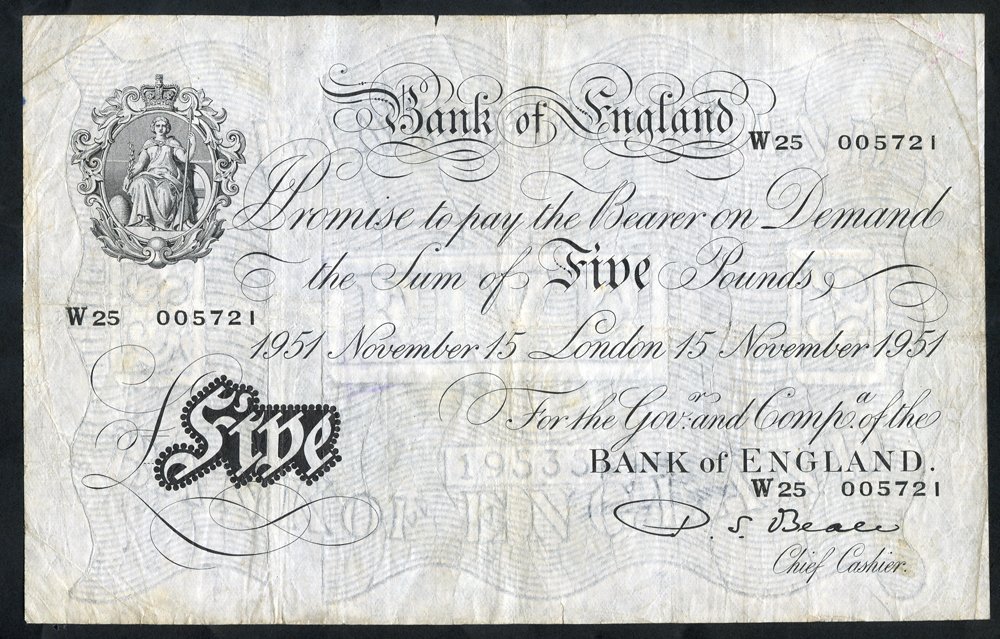 Bank of England
W25 005721
I Promise to pay the Bearer on Demand
the Sum of Five Pounds
W25 005721
1951 November 15 London 15 November 1951
£Five
For the Govr. and Compa. of the
BANK of ENGLAND.
W25 005721
P. S. Beale
Chief Cashier.